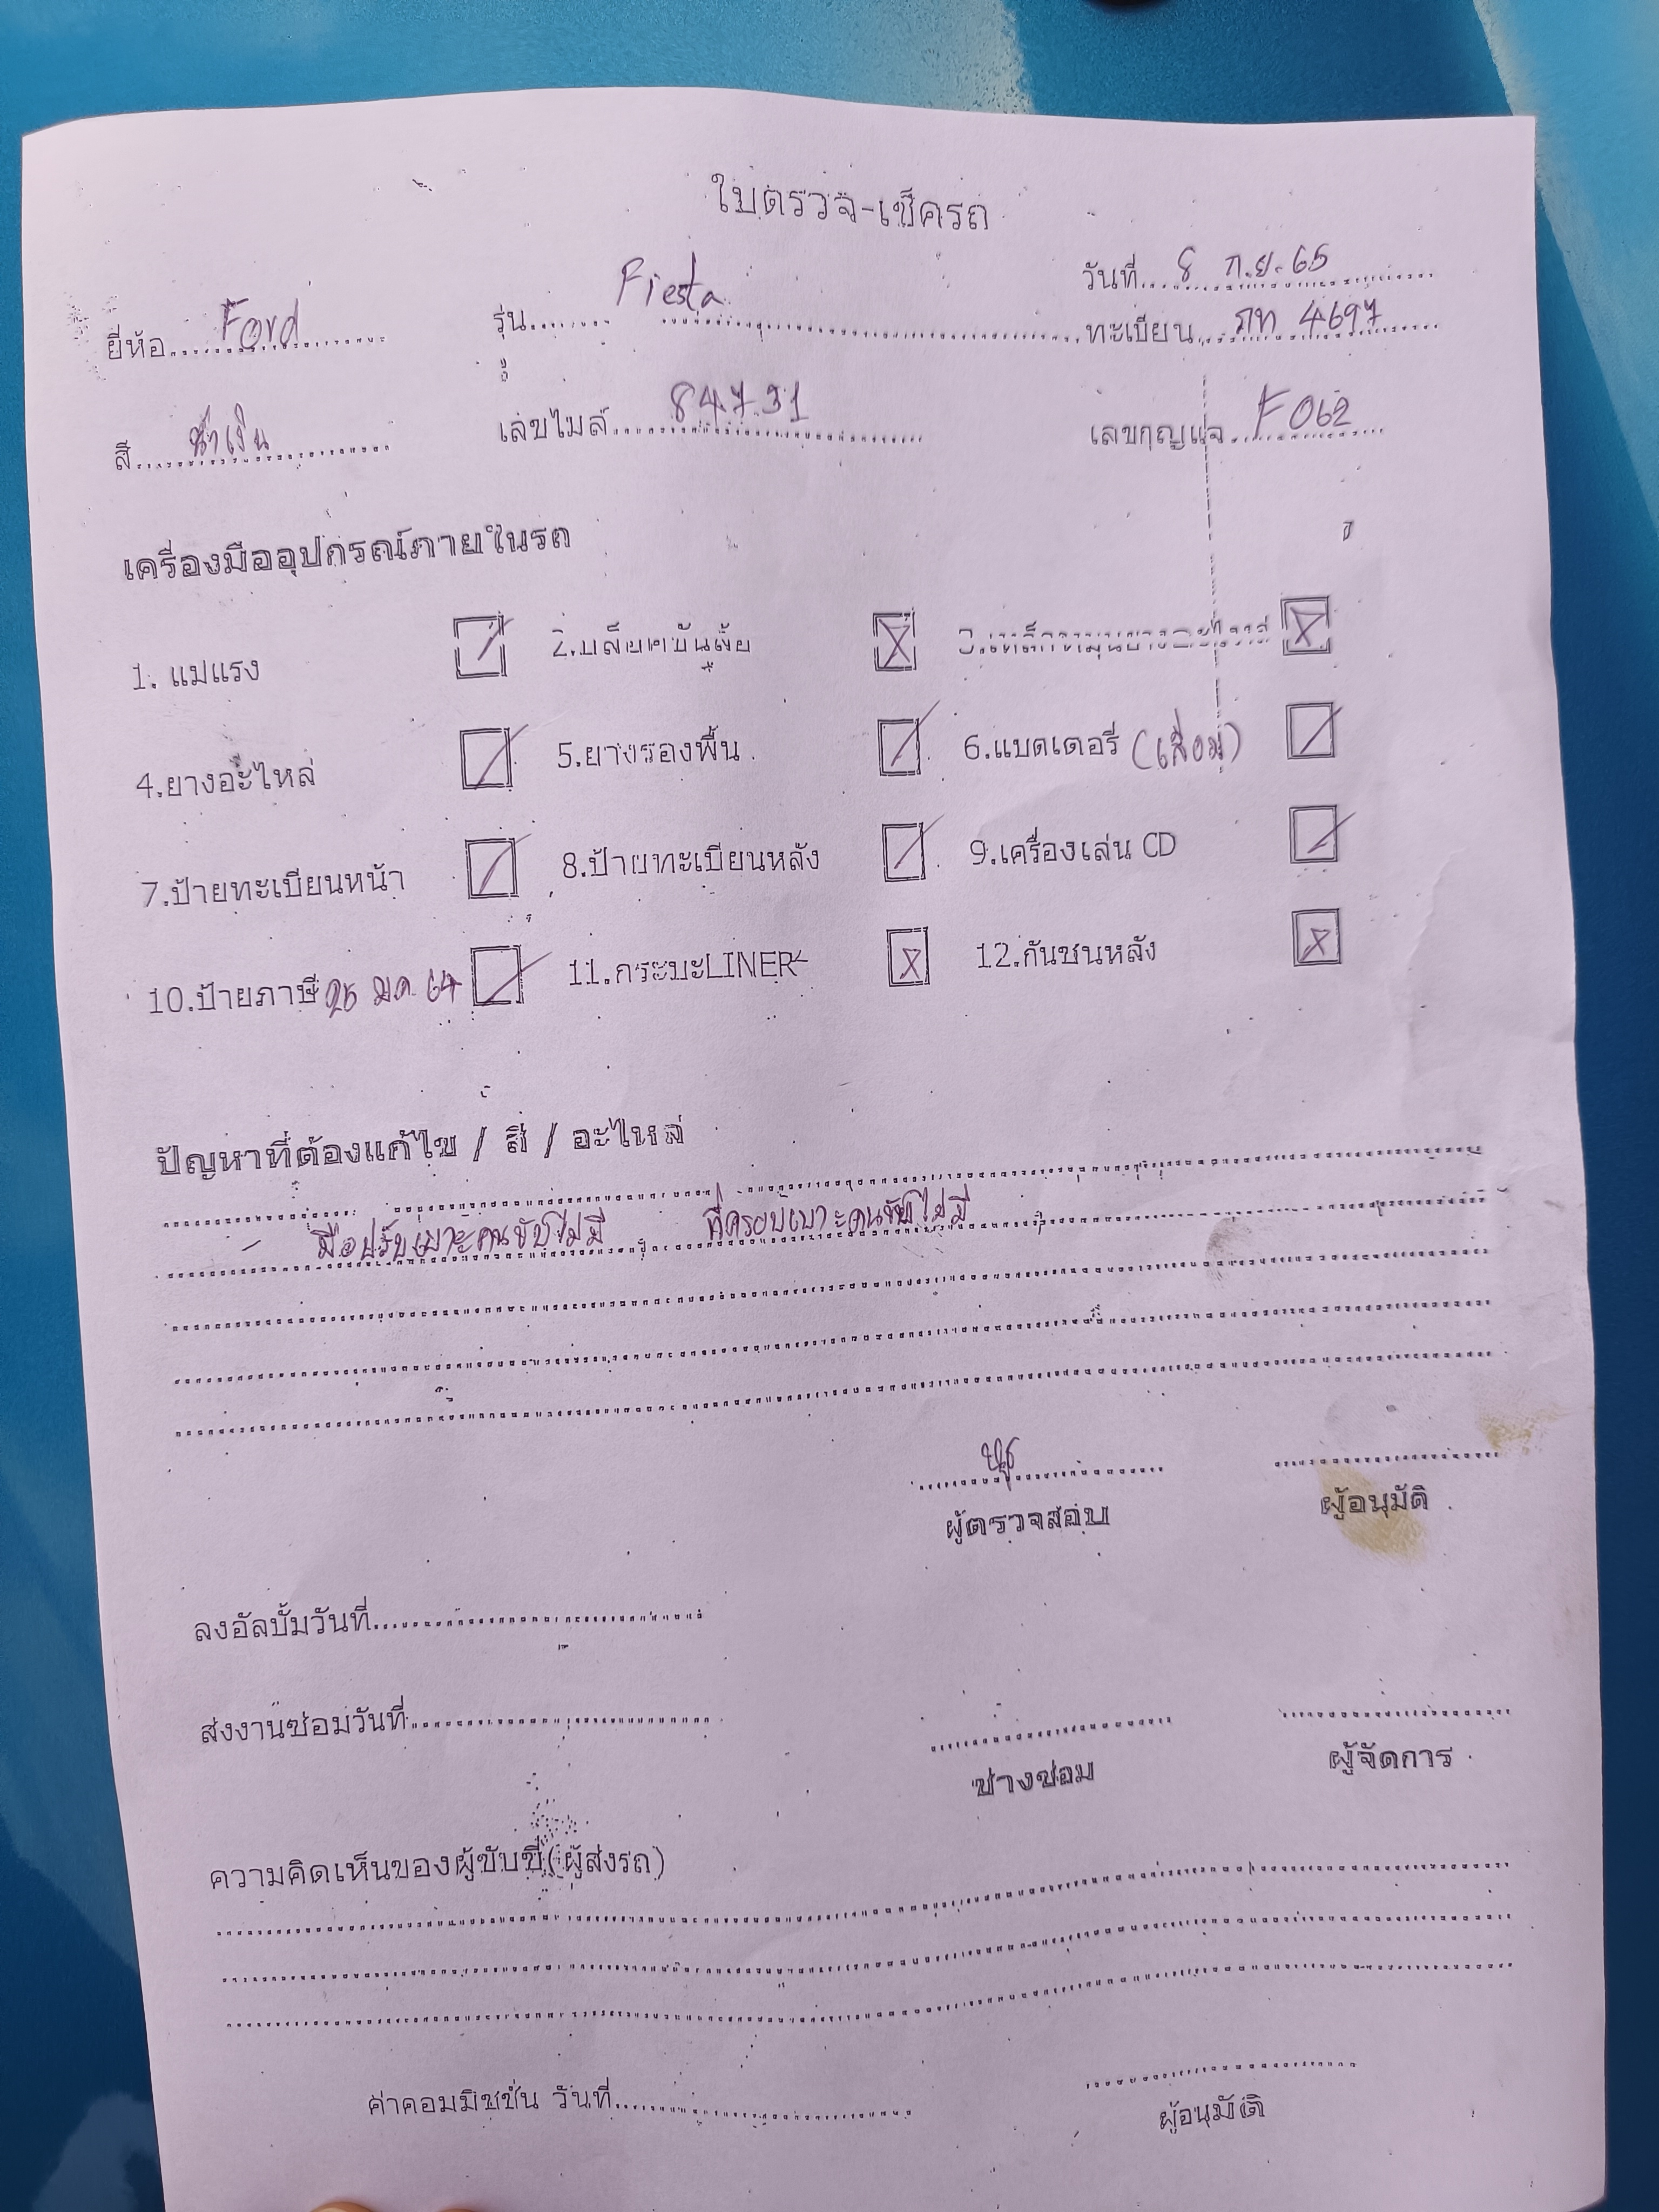 ใบตรวจ-เช็ครถ
วันที่ 8 ก.ย. 65
ยี่ห้อ Ford รุ่น Fiesta ทะเบียน 4697
สี น้ำเงิน เลขไมล์ 84731 เลขกุญแจ F062
เครื่องมืออุปกรณ์ภายในรถ
1. แม่แรง 2.บล็อคขันล้อ
4.ยางอะไหล่ 5.ยางรองพื้น 6.แบตเตอรี่ (เสื่อม)
7.ป้ายทะเบียนหน้า 8.ป้ายทะเบียนหลัง 9.เครื่องเล่น CD
10.ป้ายภาษี 11.กระบะLINER 12.กันชนหลัง
ปัญหาที่ต้องแก้ไข / สี / อะไหล่
- มือปรับเบาะคนขับไม่มี ที่ครอบเบาะคนขับไม่มี
ผู้ตรวจสอบ ผู้อนุมัติ
ลงอัลบั้มวันที่
ส่งงานซ่อมวันที่
ช่างซ่อม ผู้จัดการ
ความคิดเห็นของผู้ขับขี่(ผู้ส่งรถ)
ค่าคอมมิชชั่น วันที่
ผู้อนุมัติ